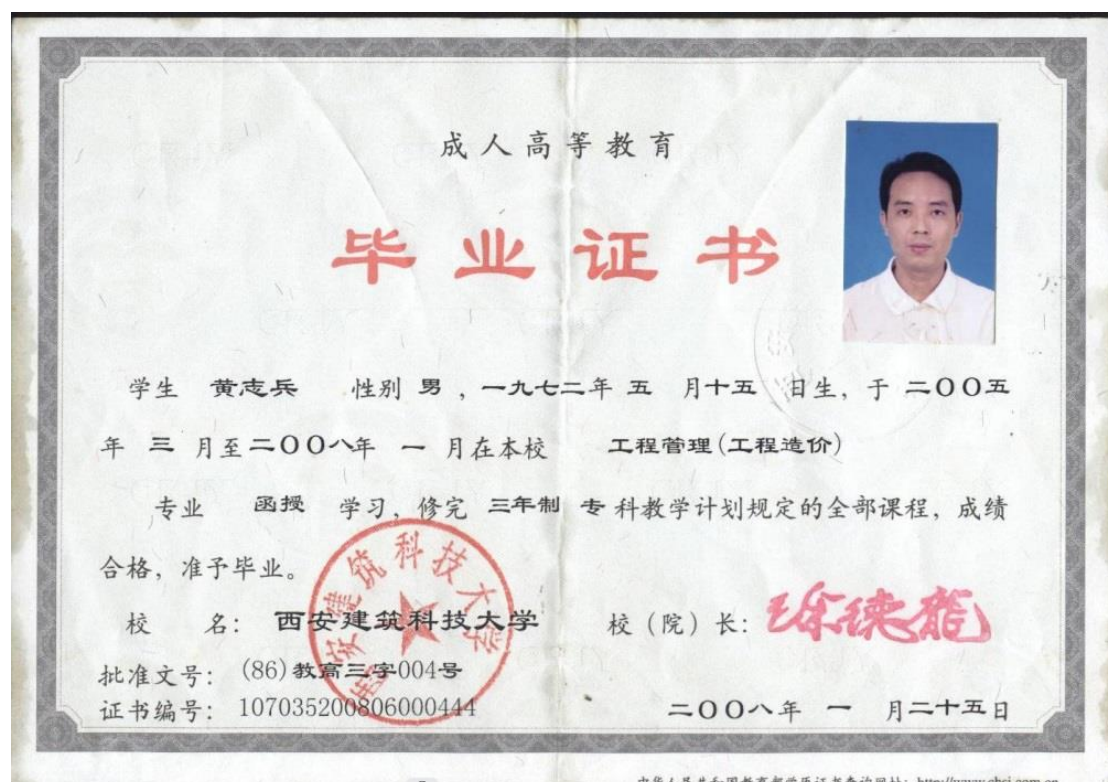 成人高等教育
毕业证书
学生 黄志兵 性别 男 ，一九七二年 五 月十五 日生，于 二〇〇五
年 三 月至二〇〇八年 一 月在本校 工程管理(工程造价)
专业 函授 学习，修完 三年制 专 科教学计划规定的全部课程，成绩
合格，准予毕业。
西安建筑科技大学
校 名： 西安建筑科技大学 校（院）长： 徐德龙
批准文号： (86)教高三字004号
证书编号： 107035200806000444 二〇〇八年 一 月二十五日
中华人民共和国教育部学历证书查询网址：http://www.chsi.com.cn